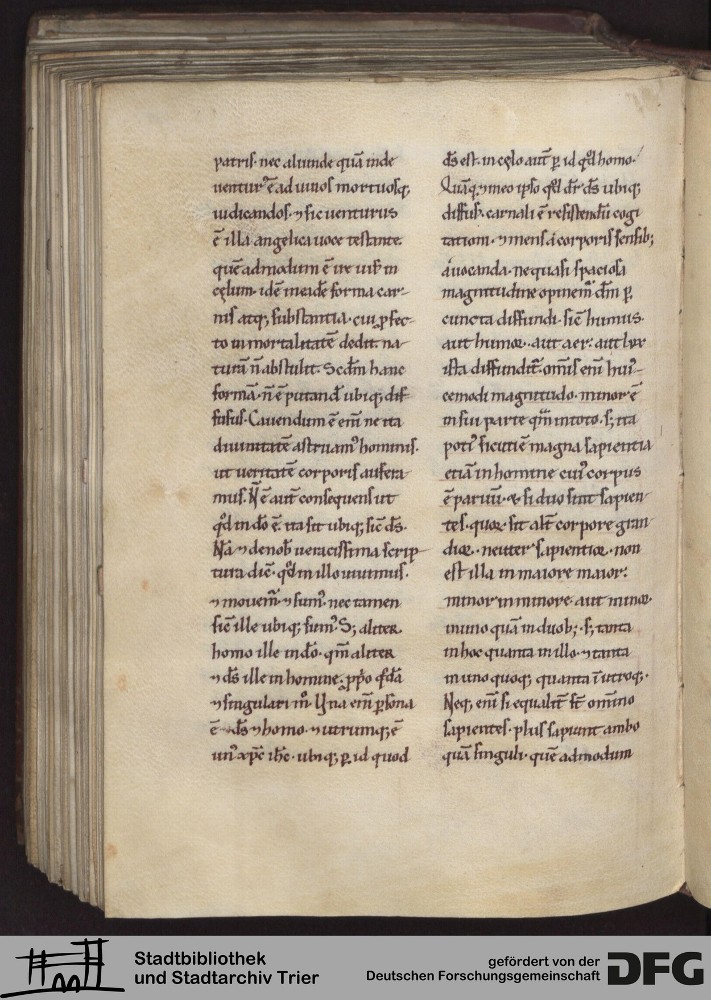 patris· nec aliunde quā inde
ventur᾽ ē ad uiuos mortuosq;
iudicandos· ⁊ sic uenturus
ē illa angelica uoce testante·
quē admodum ē ire uis᾽ in
cęlum· idē in eadē forma car-
nis atq; substantia· cui ꝓfec-
to inmortalitatē dedit· na-
turā n̄ abstulit· Scdm̄ hanc
formā· n̄ ē putand᾽ ubiq; dif-
fusus· Cauendum ē eni᷑ ne ita
diuinitatē astruam᾽ hominis·
ut ueritatē corporis aufera-
mus· N̄ ē aut᷑ consequens ut
qd᷑ in dō ē· ita sit ubiq; sic᷑ ds̄·
Nā ⁊ de nob᷑ ueracissima scrip-
tura dic᷑· qd᷑ in illo uiuimus·
⁊ mouem᷑· ⁊ sum᾽· nec tamen
sic᷑ ille ubiq; sum᾽ S; aliter
homo ille in dō· qm̄ aliter
⁊ ds̄ ille in homine· ꝓp̄o qdā
⁊ singulari m̊· Una eni᷑ ꝑsona
ē ds̄ ⁊ homo· ⁊ utrumq; ē
un᾽ xp̄c ih̄c· ubiq; ꝑ id quod
ds̄ est· in cęlo aut᷑ ꝑ id qd᷑ homo·
Quāq̄ ⁊ in eo ipso qd᷑ dr᷑ ds̄ ubiq;
diffus᾽· carnali ē resistendū cogi
tationi· ⁊ mens a corporis sensib;
auocanda· ne quasi spaciosa
magnitudine opinem᷑ dm̄ ꝑ
cuncta diffundi· sic᷑ humus·
aut humor· aut aer· aut lux
ista diffundit᷑· omīs eni᷑ hui᾽-
cemodi magnitudo· minor ē
in sui parte qm̄ in toto· s; ita
poti᾽ sicuti ē magna sapientia
etiā in homine cui᾽ corpus
ē paruū· & si duo sint sapien-
tes· quoꝝ sit alt᷑ corpore gran
dior· neuter sapientior· non
est illa in maiore maior·
minor in minore· aut minor
in uno quā in duob;· s; tanta
in hoc quanta in illo· ⁊ tanta
in uno quoq; quanta ī utroq;·
Neq; eni᷑ si equalit᷑ st̄ omīno
sapientes· plus sapiunt ambo
quā singuli· quē admodum
Stadtbibliothek
und Stadtarchiv Trier
gefördert von der
Deutschen Forschungsgemeinschaft
DFG